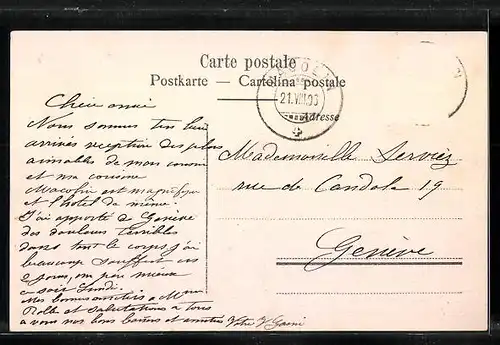 Carte postale
Postkarte — Cartolina postale
21.VIII.
Adresse
Chère amie
Nous sommes très bien
arrivés réception des plus
aimables de mon cousin
et ma cousine
est magnifique
et l'hôtel de même.
J'ai apporté de Genève
des douleurs terribles
dans tout le corps j'ai
beaucoup souffert ces
jours, un peu mieux
ce soir Lundi.
Mes bonnes amitiés à Mme
Rolle et salutations à tous
à vous nos bons baisers et amitiés Votre
Mademoiselle Serviéz
rue de Candole 19
Genève